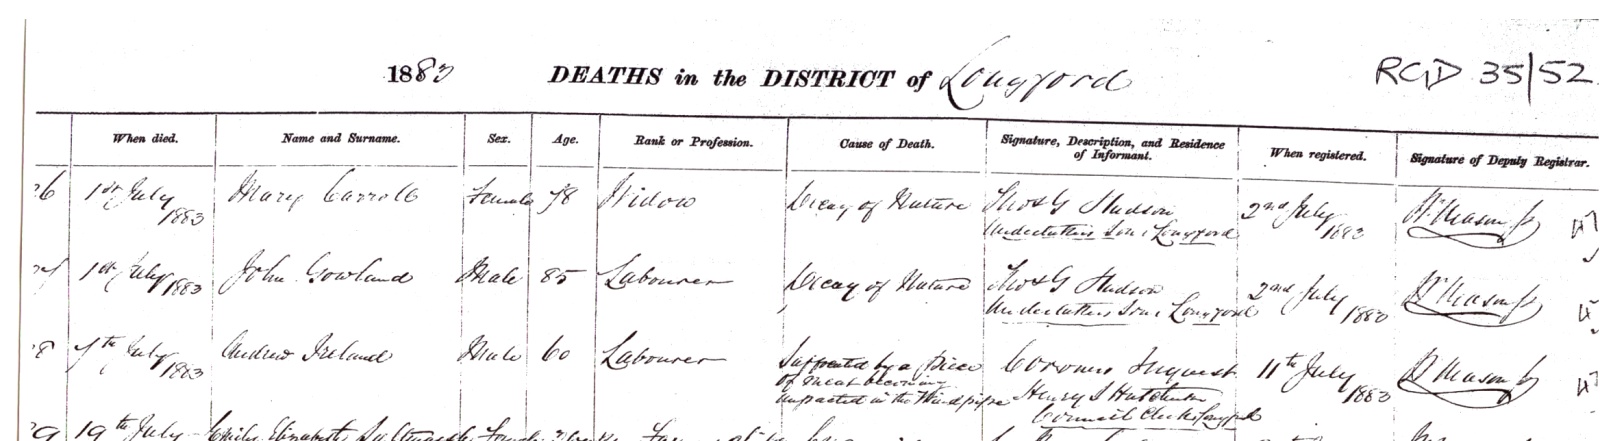 1883 DEATHS in the DISTRICT of Longford RGD 35/52
When died. Name and Surname. Sex. Age. Rank or Profession. Cause of Death. Signature, Description, and Residence of Informant. When registered. Signature of Deputy Registrar.
26 1st July 1883 Mary Carroll Female 78 Widow Decay of Nature Thos G Hudson Undertakers Son Longford 2nd July 1883
27 1st July 1883 John Gowland Male 85 Labourer Decay of Nature Thos G Hudson Undertakers Son Longford 2nd July 1883
28 7th July 1883 Andrew Ireland Male 60 Labourer Suffocated by a piece of meat becoming impacted in the Windpipe Coroners Inquest Henry S Hutchinson Council Clerk Longford 11th July 1883
29 19th July Emily Elizabeth